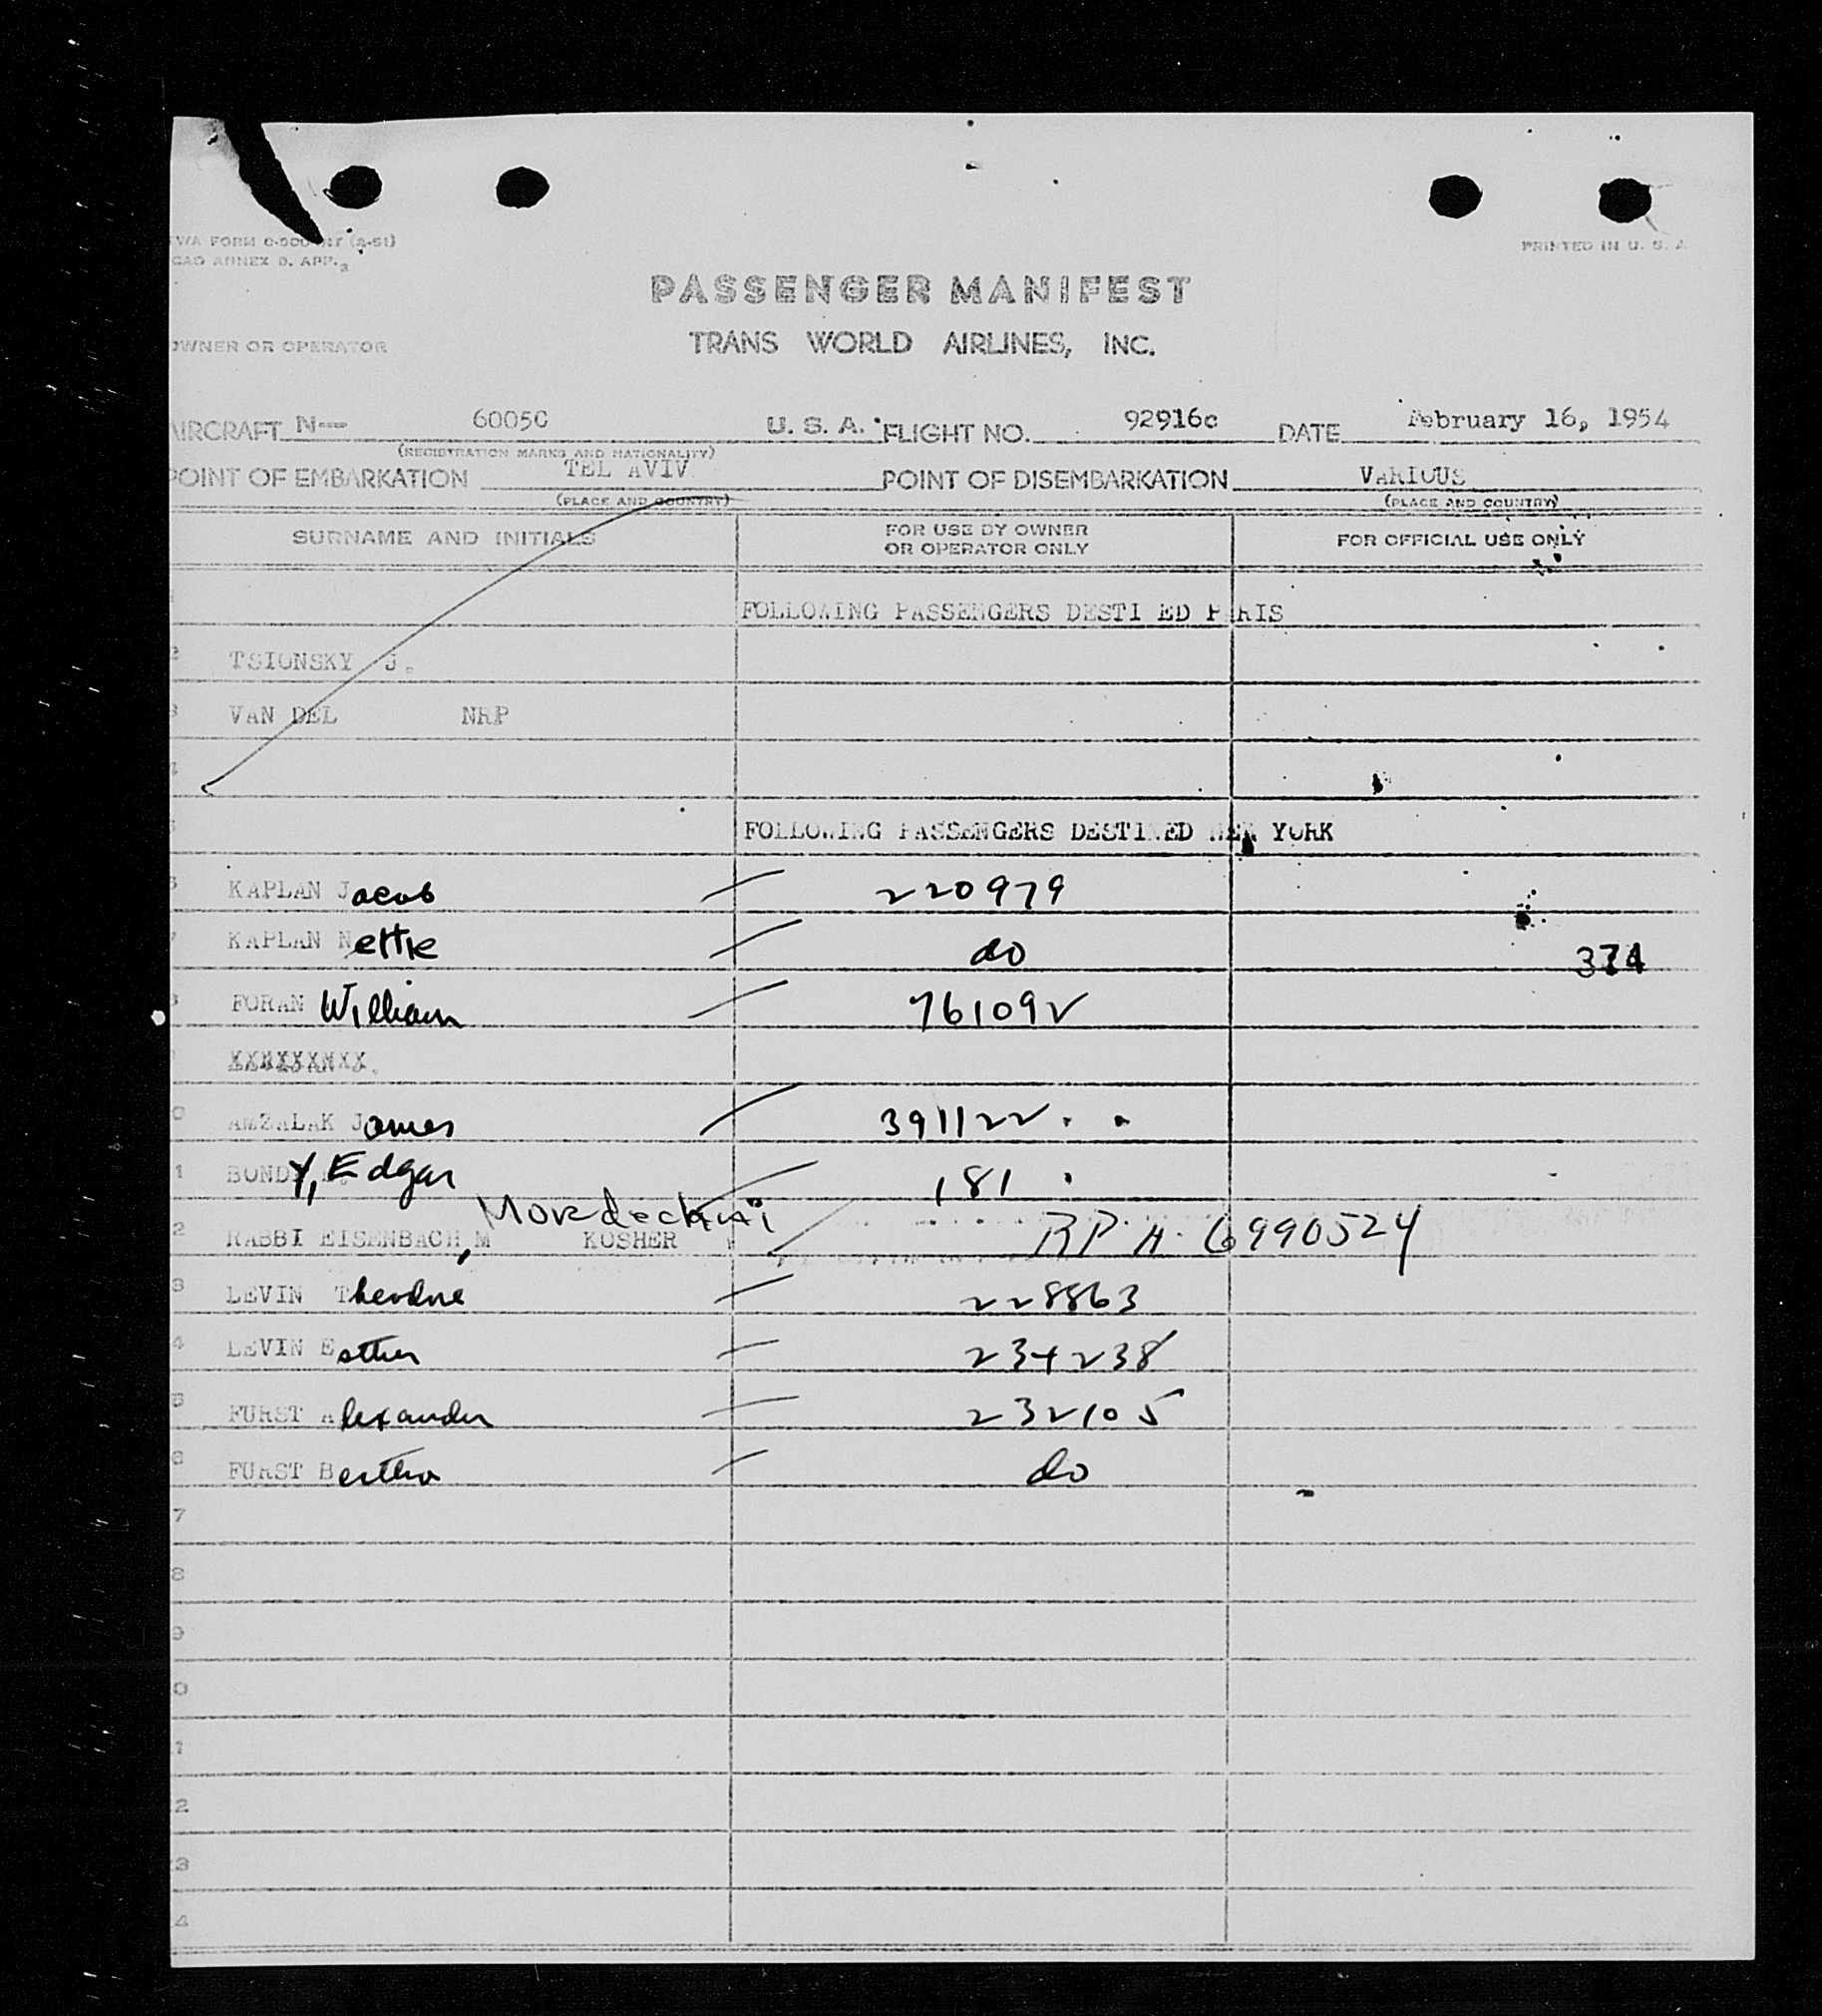 PRINTED IN U. S. A
PASSENGER MANIFEST
TRANS WORLD AIRLINES, INC.
OWNER OR OPERATOR
AIRCRAFT N-- 6005C U. S. A. FLIGHT NO. 92916c DATE February 16, 1954
(REGISTRATION MARKS AND NATIONALITY)
POINT OF EMBARKATION TEL AVIV POINT OF DISEMBARKATION VARIOUS
(PLACE AND COUNTRY) (PLACE AND COUNTRY)
SURNAME AND INITIALS FOR USE BY OWNER OR OPERATOR ONLY FOR OFFICIAL USE ONLY
FOLLOWING PASSENGERS DESTI ED PARIS
2 TSIONSKY J.
3 VAN DEL NRP
4
FOLLOWING PASSENGERS DESTINED NEW YORK
6 KAPLAN Jacob 220979
7 KAPLAN Nettie do
374
FORAN William 761092
0 AMZALAK James 391122
1 BONDY, Edgar 181
Mordechai
2 RABBI EISENBACH, M KOSHER RP. A. 6990524
3 LEVIN Theodore 228863
4 LEVIN Esther 234238
5 FURST Alexander 232105
6 FURST Bertha do
7
8
9
0
1
2
3
4